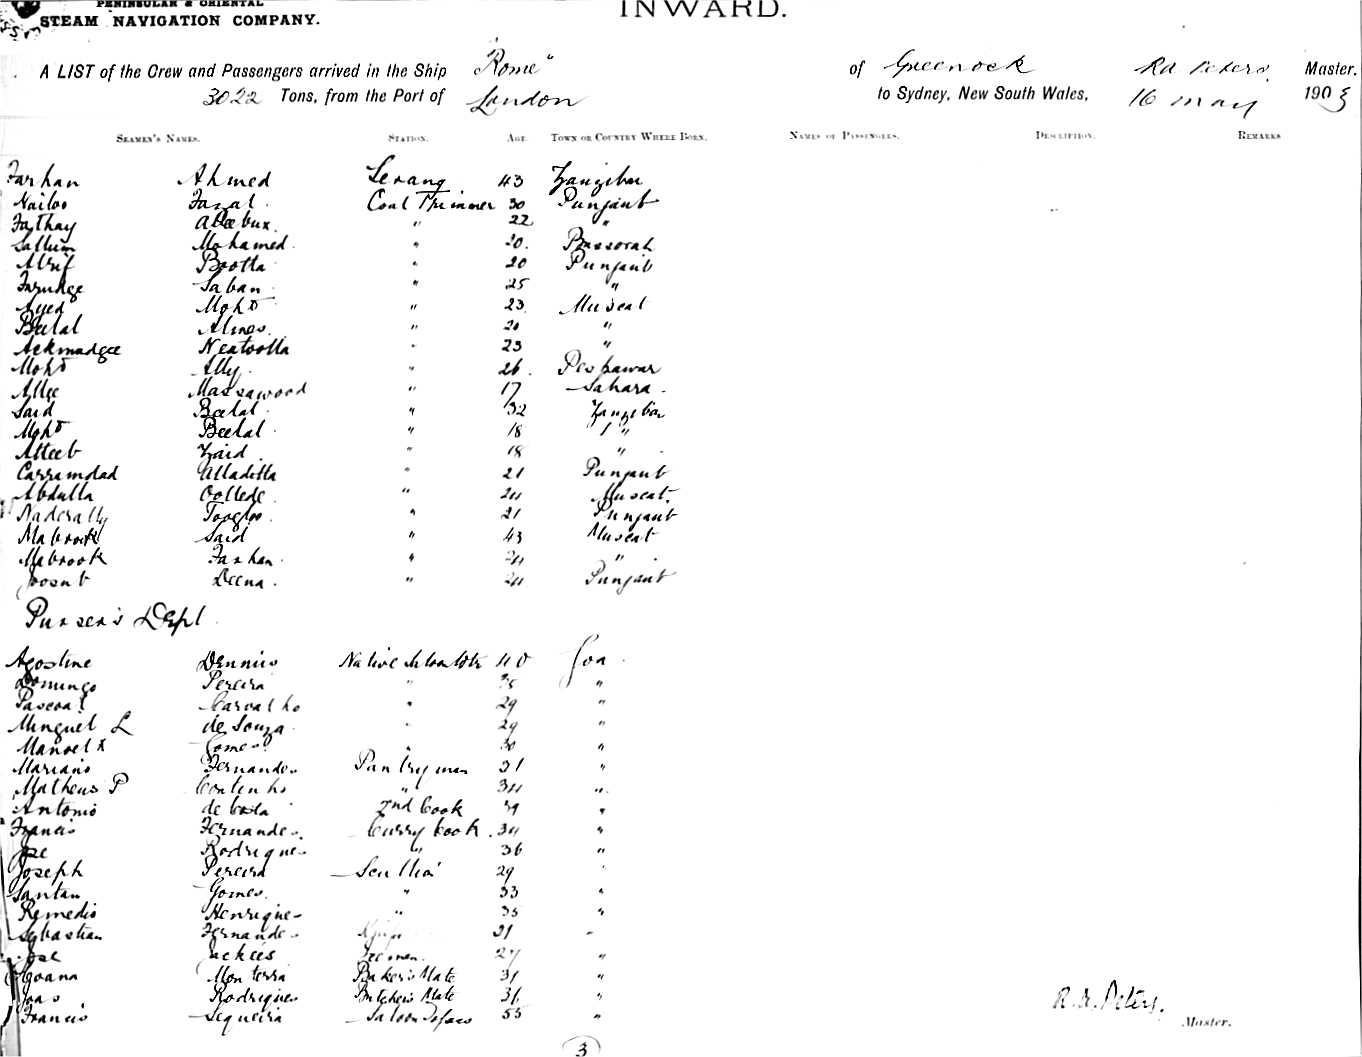 PENINSULAR & ORIENTAL
STEAM NAVIGATION COMPANY.
INWARD.
A LIST of the Crew and Passengers arrived in the Ship "Rome" of Greenock Rd Peters Master.
3022 Tons, from the Port of London to Sydney, New South Wales, 16 May 1903
SEAMEN'S NAMES. STATION. AGE TOWN OR COUNTRY WHERE BORN. NAMES OF PASSENGERS. DESCRIPTION. REMARKS
Farhan Ahmed Serang 43 Zanzibar
Fazal Coal Trimmer 30 Punjaub
Fathay Allebux " 22 "
Sallum Mohamed " 20. Bussorah
Bootta " 20 Punjaub
Farudge Saban " 25 "
Syed Mohd " 23 Muscat
Belal Almas " 20 "
Ackmadgee Neatoolla " 23 "
Mohd Ally " 26. Peshawar
Allee Massawood " 17 Sahara
Said Belal " 32 Zanzibar
Mohd Beelal " 18 "
Atteeb Zaid " 18 "
Carramdad Alladitta " 21 Punjaub
Abdulla " 24 Muscat.
Naderally " 21 Punjaub
Mabrook Said " 43 Muscat
Mabrook Farhan " 24 "
Joosub Deena " 24 Punjaub
Purser's Dept
Agostine Dennis Native 40 Goa
Domingo Pereira " 35 "
Pascoal Carvalho " 29 "
Minguel L de Souza " 29 "
Manoel X Gomes " 30 "
Mariano Fernandes Pantryman 31 "
Matheus P Coutinho " 34 "
Antonio de Costa 2nd Cook 39 "
Francis Fernandes Curry Cook 34 "
Jose Rodrigues " 36 "
Joseph Pereira 29 "
Santan Gomes " 33 "
Remedio Henriques " 35 "
Sebastian Fernandes 31 "
Jose 27 "
Monterra Baker's Mate 31 "
Joas Rodrigues Butcher's Mate 31 "
Francis Sequeira 55 "
R. D. Peters.
Master.
3